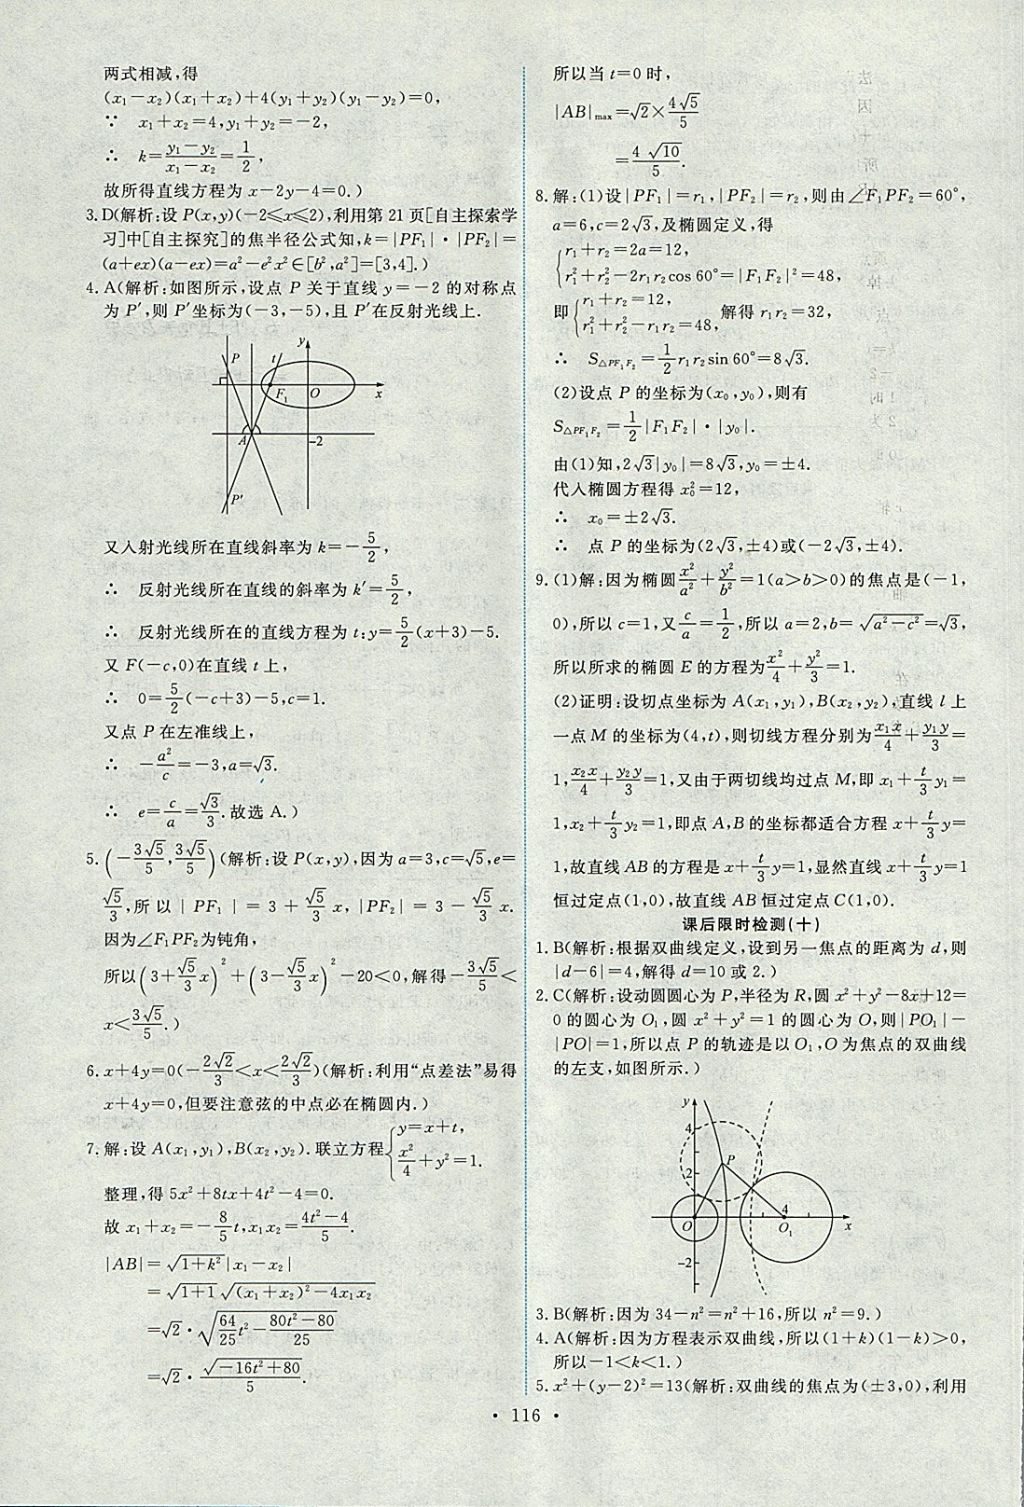 两式相减,得
(x₁−x₂)(x₁+x₂)+4(y₁+y₂)(y₁−y₂)=0,
∵ x₁+x₂=4,y₁+y₂=−2,
∴ k=(y₁−y₂)/(x₁−x₂)=1/2,
故所得直线方程为 x−2y−4=0.)
3. D(解析:设 P(x,y)(−2≤x≤2),利用第 21 页[自主探索学
习]中[自主探究]的焦半径公式知,k=|PF₁|·|PF₂|=
(a+ex)(a−ex)=a²−e²x²∈[b²,a²]=[3,4].)
4. A(解析:如图所示,设点 P 关于直线 y=−2 的对称点
为 P′,则 P′坐标为(−3,−5),且 P′在反射光线上.
P t y
F₁ O x
A −2
P′
又入射光线所在直线斜率为 k=−5/2,
∴ 反射光线所在直线的斜率为 k′=5/2,
∴ 反射光线所在的直线方程为 t:y=5/2(x+3)−5.
又 F(−c,0)在直线 t 上,
∴ 0=5/2(−c+3)−5,c=1.
又点 P 在左准线上,
∴ −a²/c=−3,a=√3.
∴ e=c/a=√3/3.故选 A.)
5. (−3√5/5,3√5/5)(解析:设 P(x,y),因为 a=3,c=√5,e=
√5/3,所以|PF₁|=3+√5/3 x,|PF₂|=3−√5/3 x.
因为∠F₁PF₂为钝角,
所以(3+√5/3 x)²+(3−√5/3 x)²−20<0,解得−3√5/5<
x<3√5/5.)
6. x+4y=0(−2√2/3<x<2√2/3)(解析:利用“点差法”易得
x+4y=0,但要注意弦的中点必在椭圆内.)
7. 解:设 A(x₁,y₁),B(x₂,y₂).联立方程{y=x+t, x²/4+y²=1.
整理,得 5x²+8tx+4t²−4=0.
故 x₁+x₂=−8/5 t,x₁x₂=(4t²−4)/5.
|AB|=√(1+k²)|x₁−x₂|
=√(1+1)√((x₁+x₂)²−4x₁x₂)
=√2·√(64/25 t²−(80t²−80)/25)
=√2·√(−16t²+80)/5.
所以当 t=0 时,
|AB|max=√2×4√5/5
=4√10/5.
8. 解:(1)设|PF₁|=r₁,|PF₂|=r₂,则由∠F₁PF₂=60°,
a=6,c=2√3,及椭圆定义,得
{r₁+r₂=2a=12,
r₁²+r₂²−2r₁r₂cos 60°=|F₁F₂|²=48,
即{r₁+r₂=12, r₁²+r₂²−r₁r₂=48, 解得 r₁r₂=32,
∴ S△PF₁F₂=1/2 r₁r₂sin 60°=8√3.
(2)设点 P 的坐标为(x₀,y₀),则有
S△PF₁F₂=1/2|F₁F₂|·|y₀|.
由(1)知,2√3|y₀|=8√3,y₀=±4.
代入椭圆方程得 x₀²=12,
∴ x₀=±2√3.
∴ 点 P 的坐标为(2√3,±4)或(−2√3,±4).
9. (1)解:因为椭圆x²/a²+y²/b²=1(a>b>0)的焦点是(−1,
0),所以 c=1,又c/a=1/2,所以 a=2,b=√(a²−c²)=√3,
所以所求的椭圆 E 的方程为x²/4+y²/3=1.
(2)证明:设切点坐标为 A(x₁,y₁),B(x₂,y₂),直线 l 上
一点 M 的坐标为(4,t),则切线方程分别为x₁x/4+y₁y/3=
1,x₂x/4+y₂y/3=1,又由于两切线均过点 M,即 x₁+t/3 y₁=
1,x₂+t/3 y₂=1,即点 A,B 的坐标都适合方程 x+t/3 y=
1,故直线 AB 的方程是 x+t/3 y=1,显然直线 x+t/3 y=1
恒过定点(1,0),故直线 AB 恒过定点 C(1,0).
课后限时检测(十)
1. B(解析:根据双曲线定义,设到另一焦点的距离为 d,则
|d−6|=4,解得 d=10 或 2.)
2. C(解析:设动圆圆心为 P,半径为 R,圆 x²+y²−8x+12=
0 的圆心为 O₁,圆 x²+y²=1 的圆心为 O,则|PO₁|−
|PO|=1,所以点 P 的轨迹是以 O₁,O 为焦点的双曲线
的左支,如图所示.)
y
4
P
2
4
O O₁ x
−2
3. B(解析:因为 34−n²=n²+16,所以 n²=9.)
4. A(解析:因为方程表示双曲线,所以(1+k)(1−k)>0,
所以−1<k<1.)
5. x²+(y−2)²=13(解析:双曲线的焦点为(±3,0),利用
• 116 •